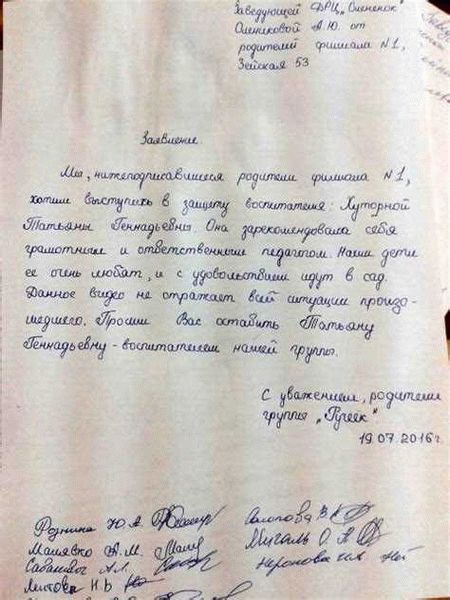 Заведующей ФРЦ „Олененок"
Олениковой А.Ю. от
родителей филиала №1,
Зейская 53
Заявление.
Мы, нижеподписавшиеся родители филиала №1,
хотим выступить в защиту воспитателя: Хуторной
Татьяны Геннадьевны. Она зарекомендовала себя
грамотным и ответственным педагогом. Наши дети
ее очень любят, и с удовольствием идут в сад.
Данное видео не отражает всей ситуации произо-
шедшего. Просим Вас оставить Татьяну
Геннадьевну - воспитателем нашей группы.
С уважением, родители
группы „Ручеек"
19.07.2016г.
Роднина Ю.А.
Малявко А.М.
А.Л.
Н.В.
В.К.
Мигаль О.А.